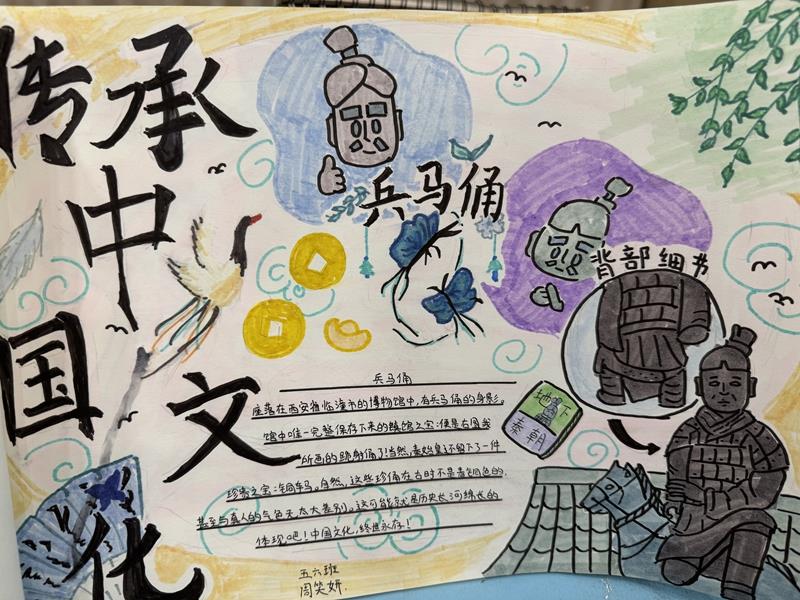 传承
中
国
文
化
兵马俑
背部细节
地下
秦朝
兵马俑
座落在西安省临潼市的博物馆中,有兵马俑的身影。
馆中唯一完整保存下来的镇馆之宝便是右图我
所画的跪射俑了!当然,秦始皇还留下了一件
珍贵之宝:铜车马。自然,这些珍俑在古时不是青铜色的,
甚至与真人的气色无太大差别。这可能就是历史长河绵长的
体现吧!中国文化,终世永存!
五六班
周笑妍